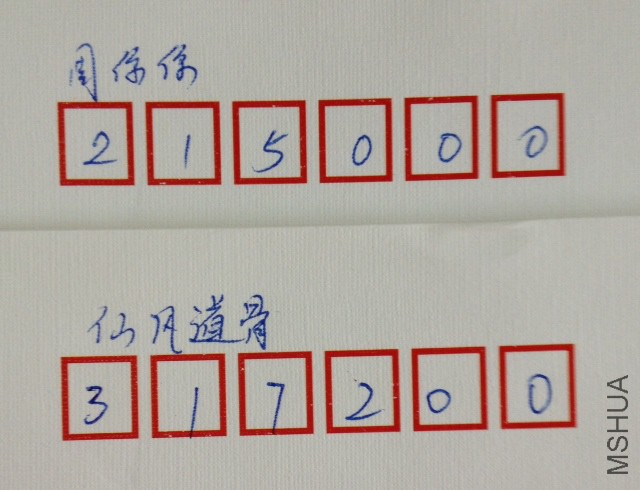 周保保
215000
仙风道骨
317200
MSHUA